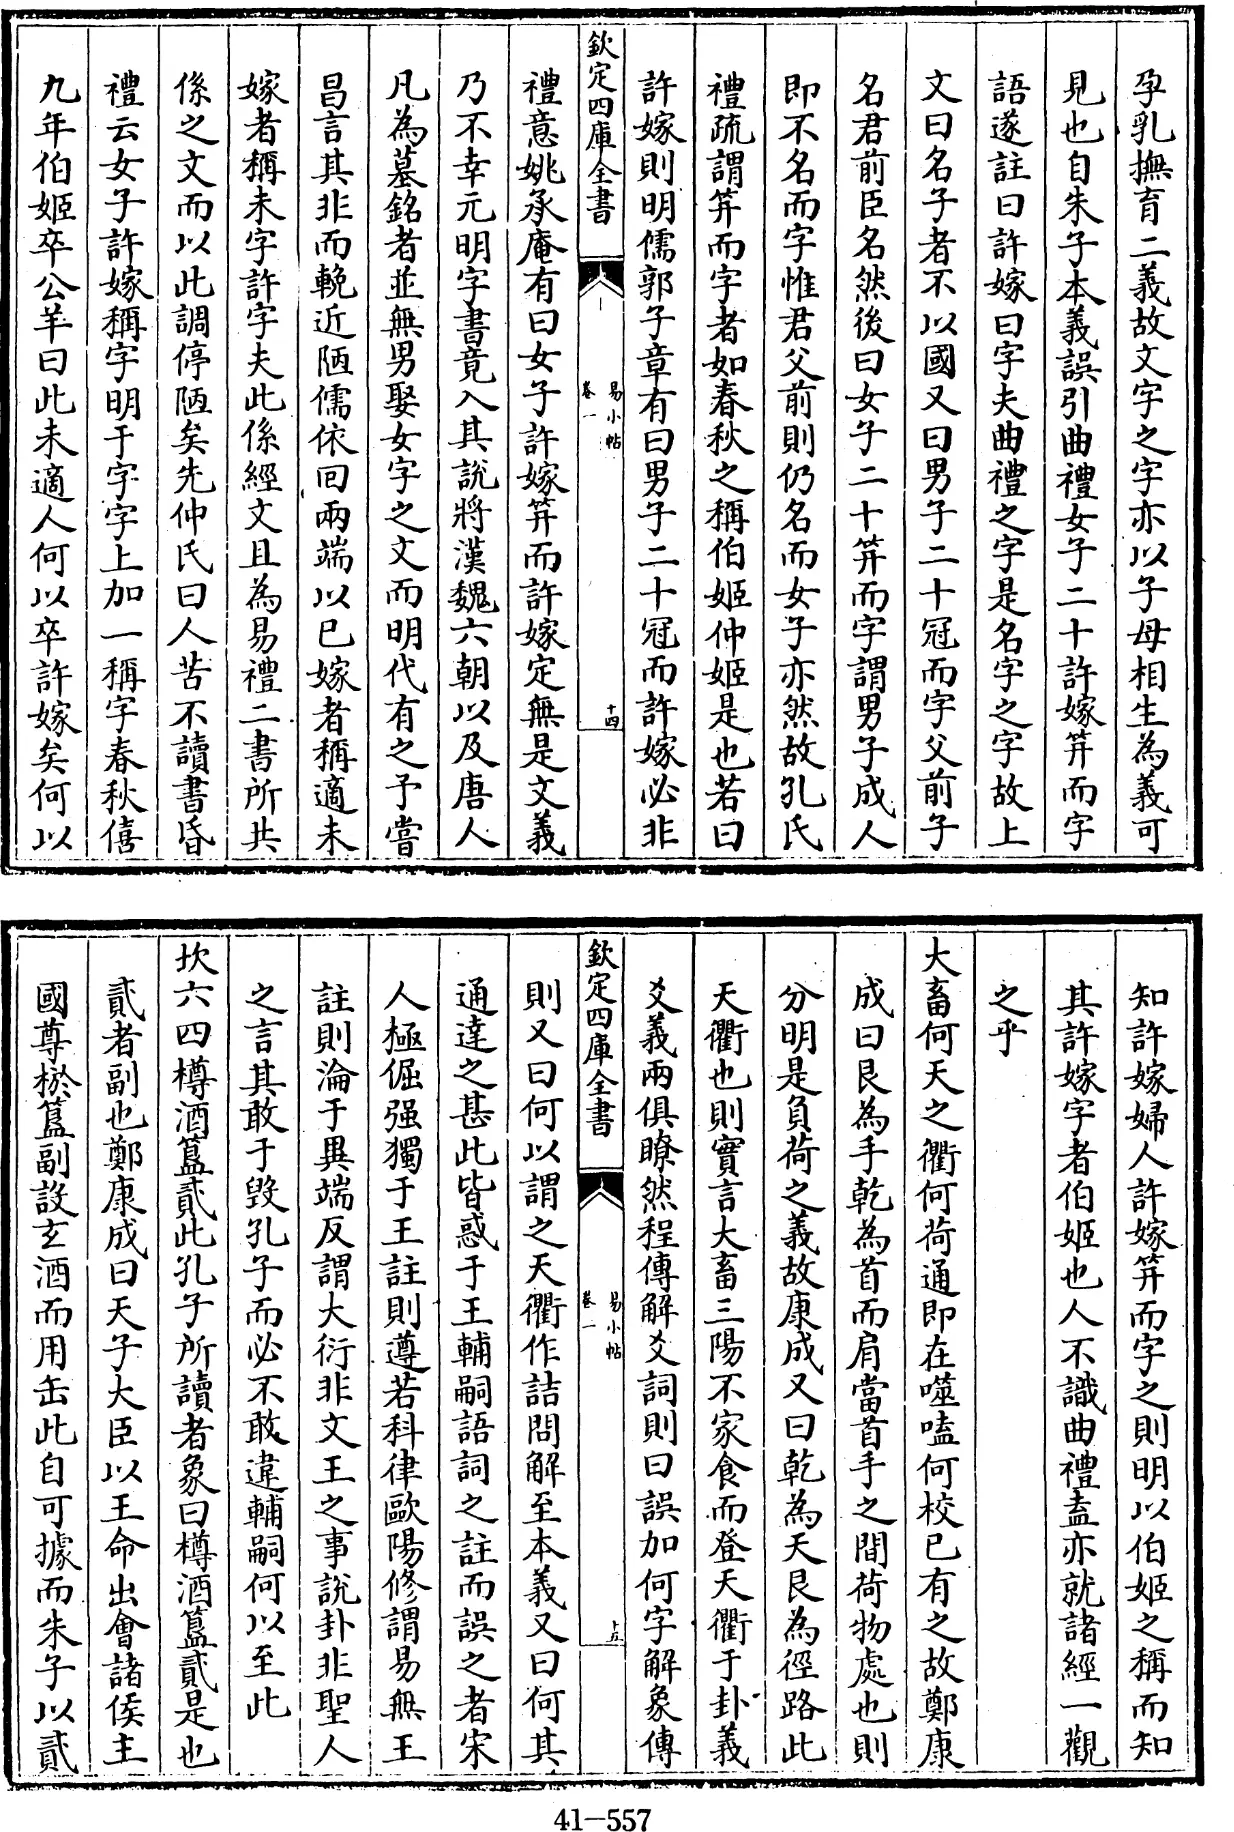 孕乳撫育二義故文字之字亦以子母相生為義可
見也自朱子本義誤引曲禮女子二十許嫁笄而字
語遂註曰許嫁曰字夫曲禮之字是名字之字故上
文曰名子者不以國又曰男子二十冠而字父前子
名君前臣名然後曰女子二十笄而字謂男子成人
即不名而字惟君父前則仍名而女子亦然故孔氏
禮疏謂笄而字者如春秋之稱伯姬仲姬是也若曰
許嫁則明儒郭子章有曰男子二十冠而許嫁必非
欽定四庫全書
易小帖
卷一
十四
禮意姚承庵有曰女子許嫁笄而許嫁定無是文義
乃不幸元明字書竟入其說將漢魏六朝以及唐人
凡為墓銘者並無男娶女字之文而明代有之予嘗
昌言其非而輓近陋儒依回兩端以已嫁者稱適未
嫁者稱未字許字夫此係經文且為易禮二書所共
係之文而以此調停陋矣先仲氏曰人苦不讀書昏
禮云女子許嫁稱字明于字字上加一稱字春秋僖
九年伯姬卒公羊曰此未適人何以卒許嫁矣何以
知許嫁婦人許嫁笄而字之則明以伯姬之稱而知
其許嫁字者伯姬也人不識曲禮盍亦就諸經一觀
之乎
大畜何天之衢何荷通即在噬嗑何校已有之故鄭康
成曰艮為手乾為首而肩當首手之間荷物處也則
分明是負荷之義故康成又曰乾為天艮為徑路此
天衢也則實言大畜三陽不家食而登天衢于卦義
爻義兩俱瞭然程傳解爻詞則曰誤加何字解象傳
欽定四庫全書
易小帖
卷一
十五
則又曰何以謂之天衢作詰問解至本義又曰何其
通達之甚此皆惑于王輔嗣語詞之註而誤之者宋
人極倔强獨于王註則遵若科律歐陽修謂易無王
註則淪于異端反謂大衍非文王之事說卦非聖人
之言其敢于毀孔子而必不敢違輔嗣何以至此
坎六四樽酒簋貳此孔子所讀者象曰樽酒簋貳是也
貳者副也鄭康成曰天子大臣以王命出會諸侯主
國尊棜簋副設玄酒而用缶此自可據而朱子以貳
41-557